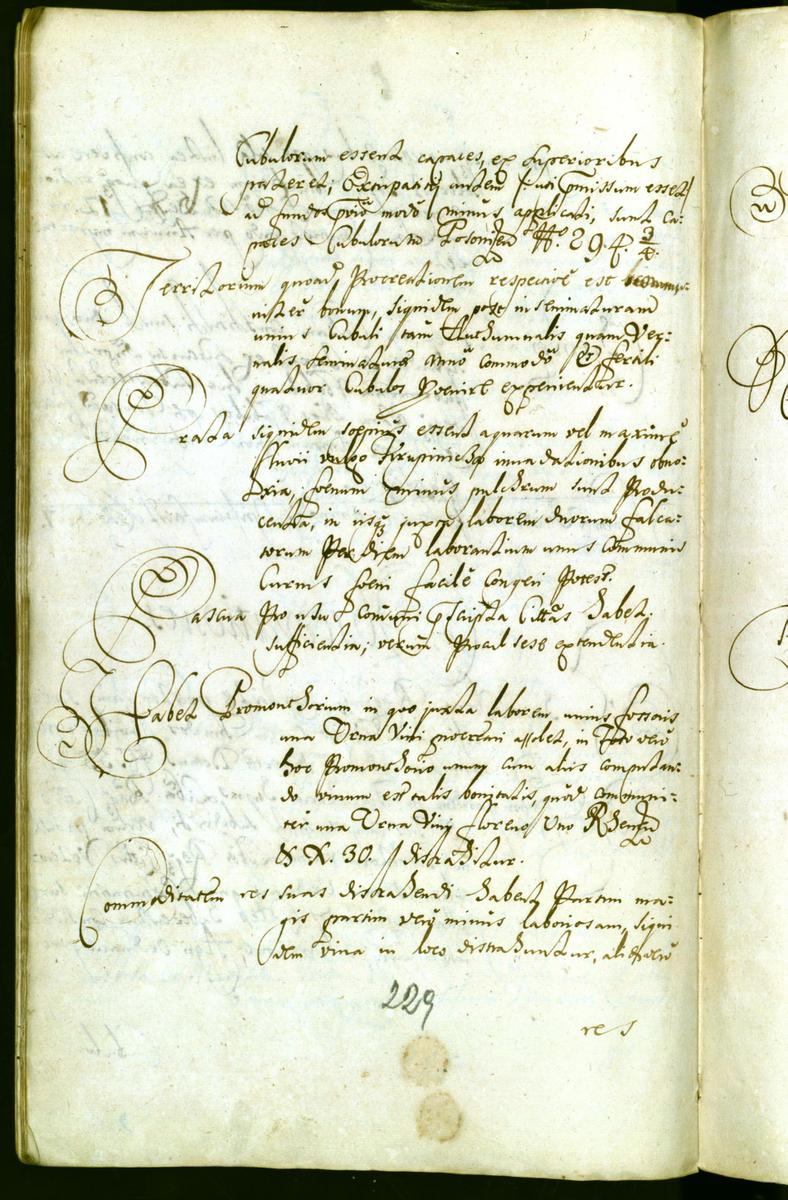 Cubulorum essent capaces, ex superioribus
pateret; Extirpatitij autem /: uti pmissum esset :/
ad fundos modo minus applicati, sunt ca-
paces Cubulorum Posonien N° 294 3/4.
Territorium quoad Procreationem respectivè est commu-
niter bonum, siquidem post inseminaturam
unius Cubuli tam Authumnalis quam Ver-
nalis seminaturae Anno commodo & fertili
quatuor Cubulos Provenire experientur.
Prata siquidem soepius essent aquarum vel maximè
fluvii vulgo inundationibus obno-
xia, foenum minus pulchrum sunt Produ-
centia, in iisq juxta laborem duorum falca-
torum Per diem laborantium unus Communis
Currus foeni facilè Congeri Potest.
Pascua Pro usu Comuni pscripta Cittas habet
sufficientia; verum Procul sese extendentia.
Habet Promonthorium in quo juxta laborem unius fossoris
una Urna Vini procreari assolet, in Toto verò
hoc Promonthorio unum cum aliis computan-
do vinum est talis bonitatis, quod communi-
ter una Urna Vini floreno Uno Rhen
& X. 30. distrahitur.
Commoditatem res suas distrahendi habet Partim ma-
gis partim verò minus laboriosam, siqui
dem vina in loco distrahuntur, alias verò
229
res